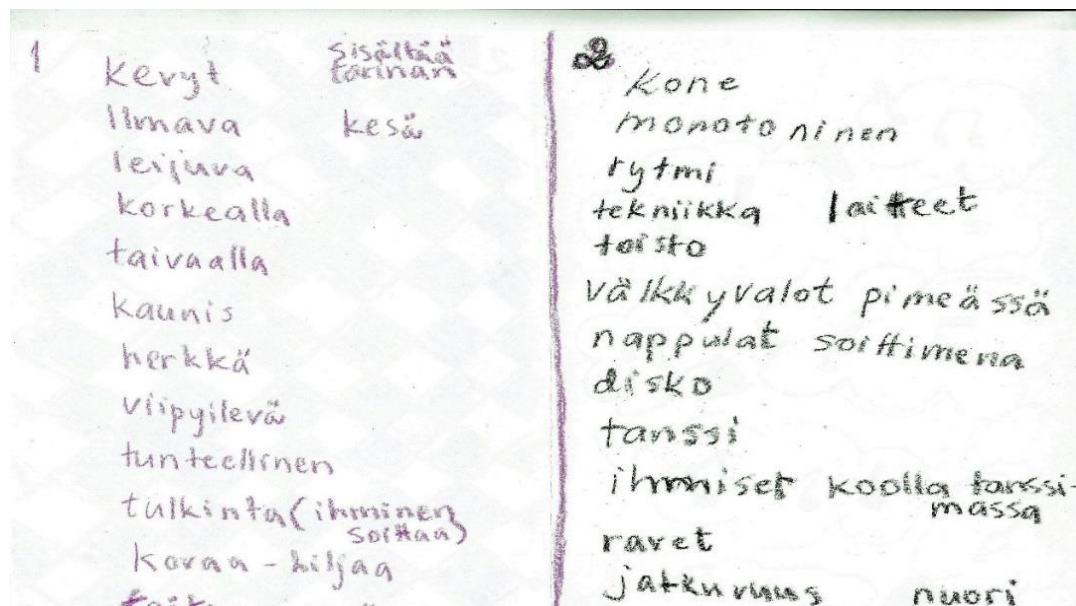 1
kevyt
sisältää
tarinan
Ilmava kesä
leijuva
korkealla
taivaalla
kaunis
herkkä
viipyilevä
tunteellinen
tulkinta (ihminen
soittaa)
kovaa - hiljaa
2
kone
monotoninen
rytmi
tekniikka laitteet
toisto
välkkyvalot pimeässä
nappulat soittimena
disko
tanssi
ihmiset koolla tanssi-
massa
ravet
jatkuvuus nuori